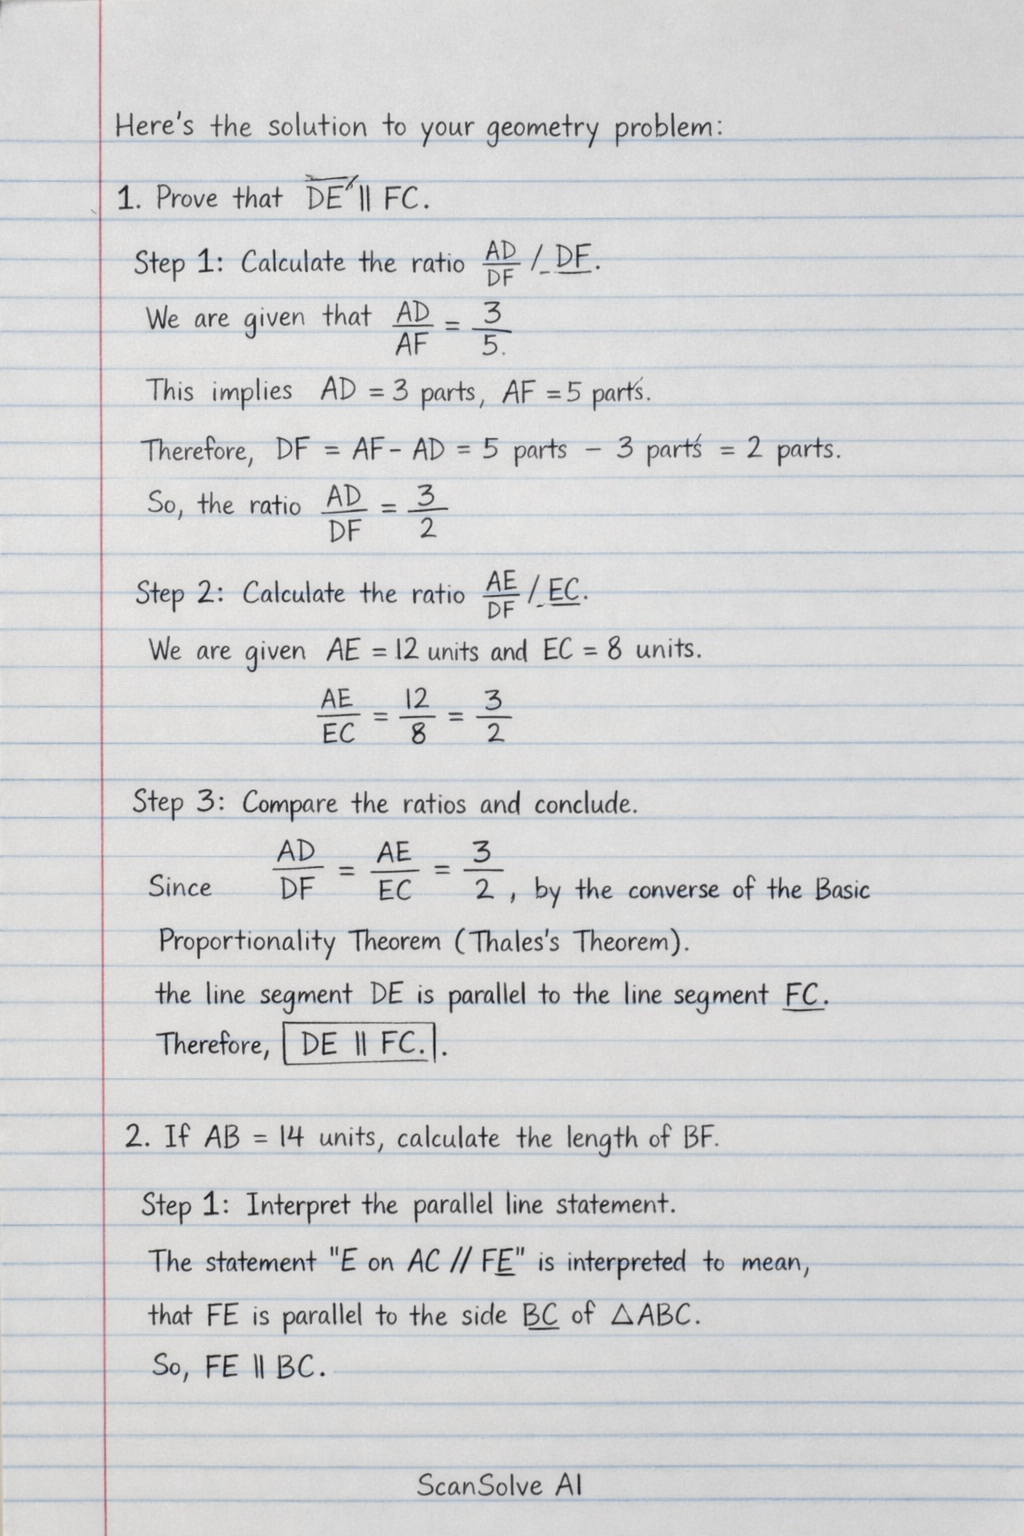 Here's the solution to your geometry problem:
1. Prove that DE ∥ FC.
Step 1: Calculate the ratio AD/DF / DF.
We are given that AD/AF = 3/5.
This implies AD = 3 parts, AF = 5 parts.
Therefore, DF = AF - AD = 5 parts - 3 parts = 2 parts.
So, the ratio AD/DF = 3/2
Step 2: Calculate the ratio AE/DF / EC.
We are given AE = 12 units and EC = 8 units.
AE/EC = 12/8 = 3/2
Step 3: Compare the ratios and conclude.
Since AD/DF = AE/EC = 3/2, by the converse of the Basic
Proportionality Theorem (Thales's Theorem).
the line segment DE is parallel to the line segment FC.
Therefore, DE ∥ FC..
2. If AB = 14 units, calculate the length of BF.
Step 1: Interpret the parallel line statement.
The statement "E on AC // FE" is interpreted to mean,
that FE is parallel to the side BC of △ABC.
So, FE ∥ BC.
ScanSolve AI